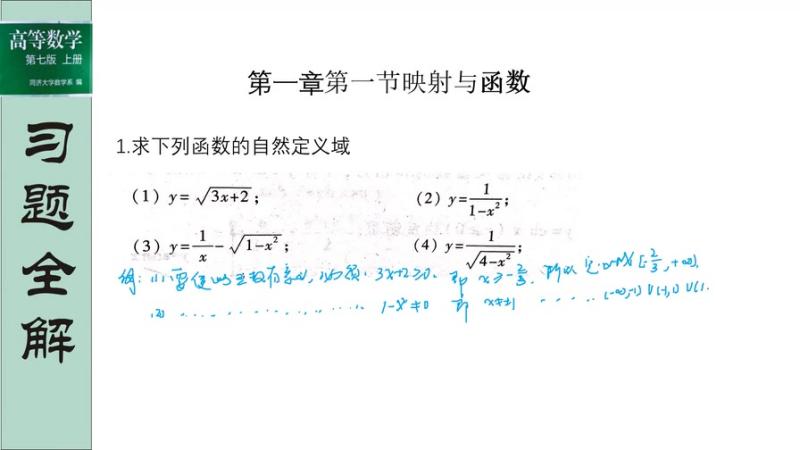 高等数学
第七版 上册
同济大学数学系 编
习题全解
第一章第一节映射与函数
1.求下列函数的自然定义域
(1) y=√(3x+2); (2) y=1/(1-x²);
(3) y=1/x-√(1-x²); (4) y=1/√(4-x²);
解: (1) 要使函数有意义, 必须 3x+2≥0. 即 x≥-2/3. 所以定义域[-2/3, +∞).
(2) ...... 1-x²≠0 即 x≠±1 ..... (-∞,-1)∪(-1,1)∪(1.